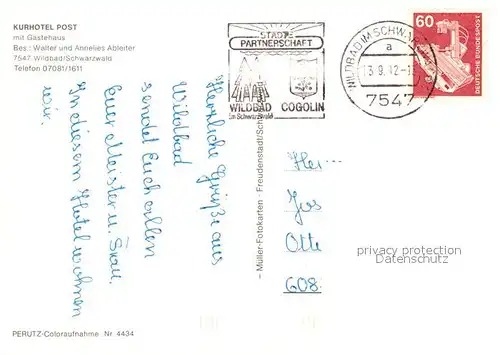 KURHOTEL POST
mit Gästehaus
Bes.: Walter und Annelies Ableiter
7547 Wildbad/Schwarzwald
Telefon 07081/1611
Herzliche Grüße aus
Wildbad
sendet Euch allen
Euer Meister u. Frau.
In diesem Hotel wohnen
wir.
PERUTZ-Coloraufnahme Nr. 4434
Müller-Fotokarten - Freudenstadt/Sch
STÄDTE
PARTNERSCHAFT
WILDBAD COGOLIN
im Schwarzwald
WILDBAD IM SCHWARZW
a
13.9.
7547
60
DEUTSCHE BUNDESPOST
Otte
608
privacy protection
Datenschutz